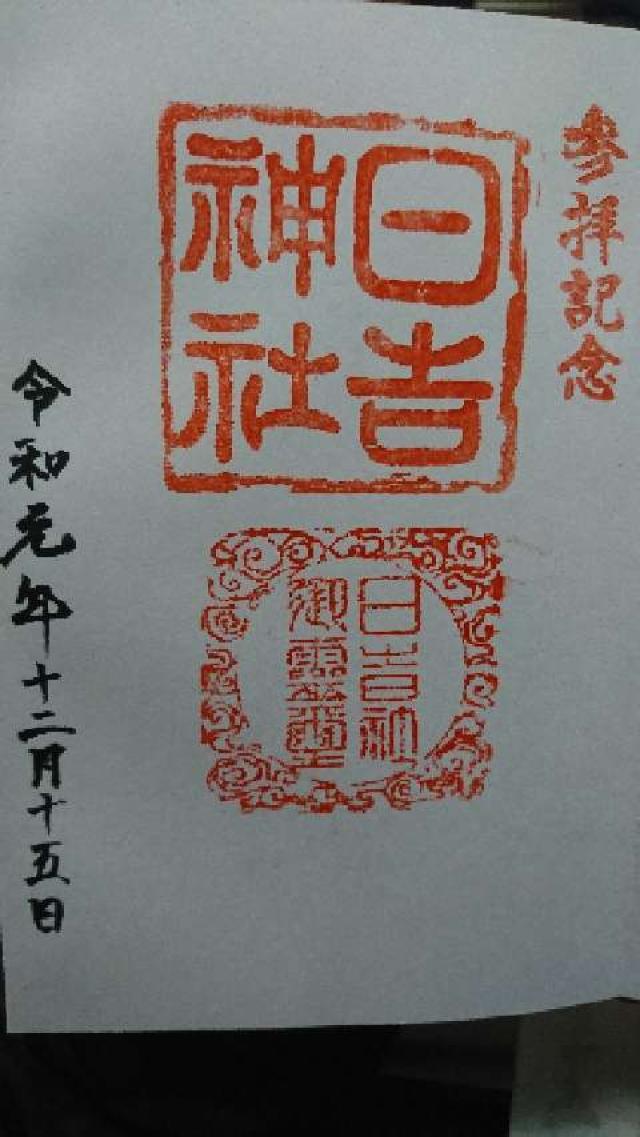 參拜記念
日吉
神社
日吉社
御靈璽
令和元年十二月十五日